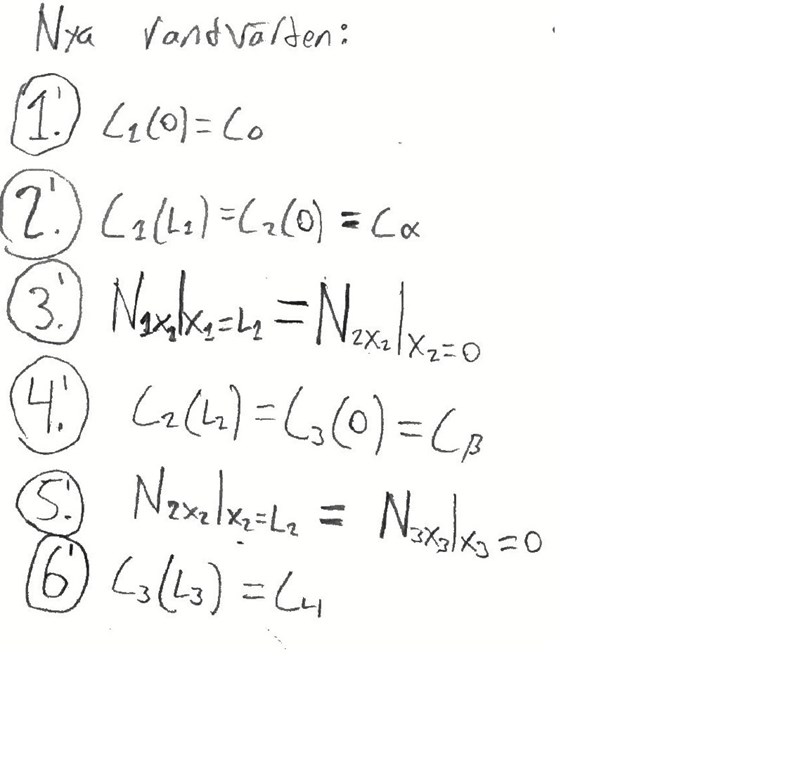 Nya randvärden:
1.' C₁(0) = C₀
2.' C₁(L₁) = C₂(0) = Cα
3.' N₁ₓ₁|ₓ₁₌L₁ = N₂ₓ₂|ₓ₂₌₀
4.' C₂(L₂) = C₃(0) = Cβ
5.' N₂ₓ₂|ₓ₂₌L₂ = N₃ₓ₃|ₓ₃₌₀
6' C₃(L₃) = C₄